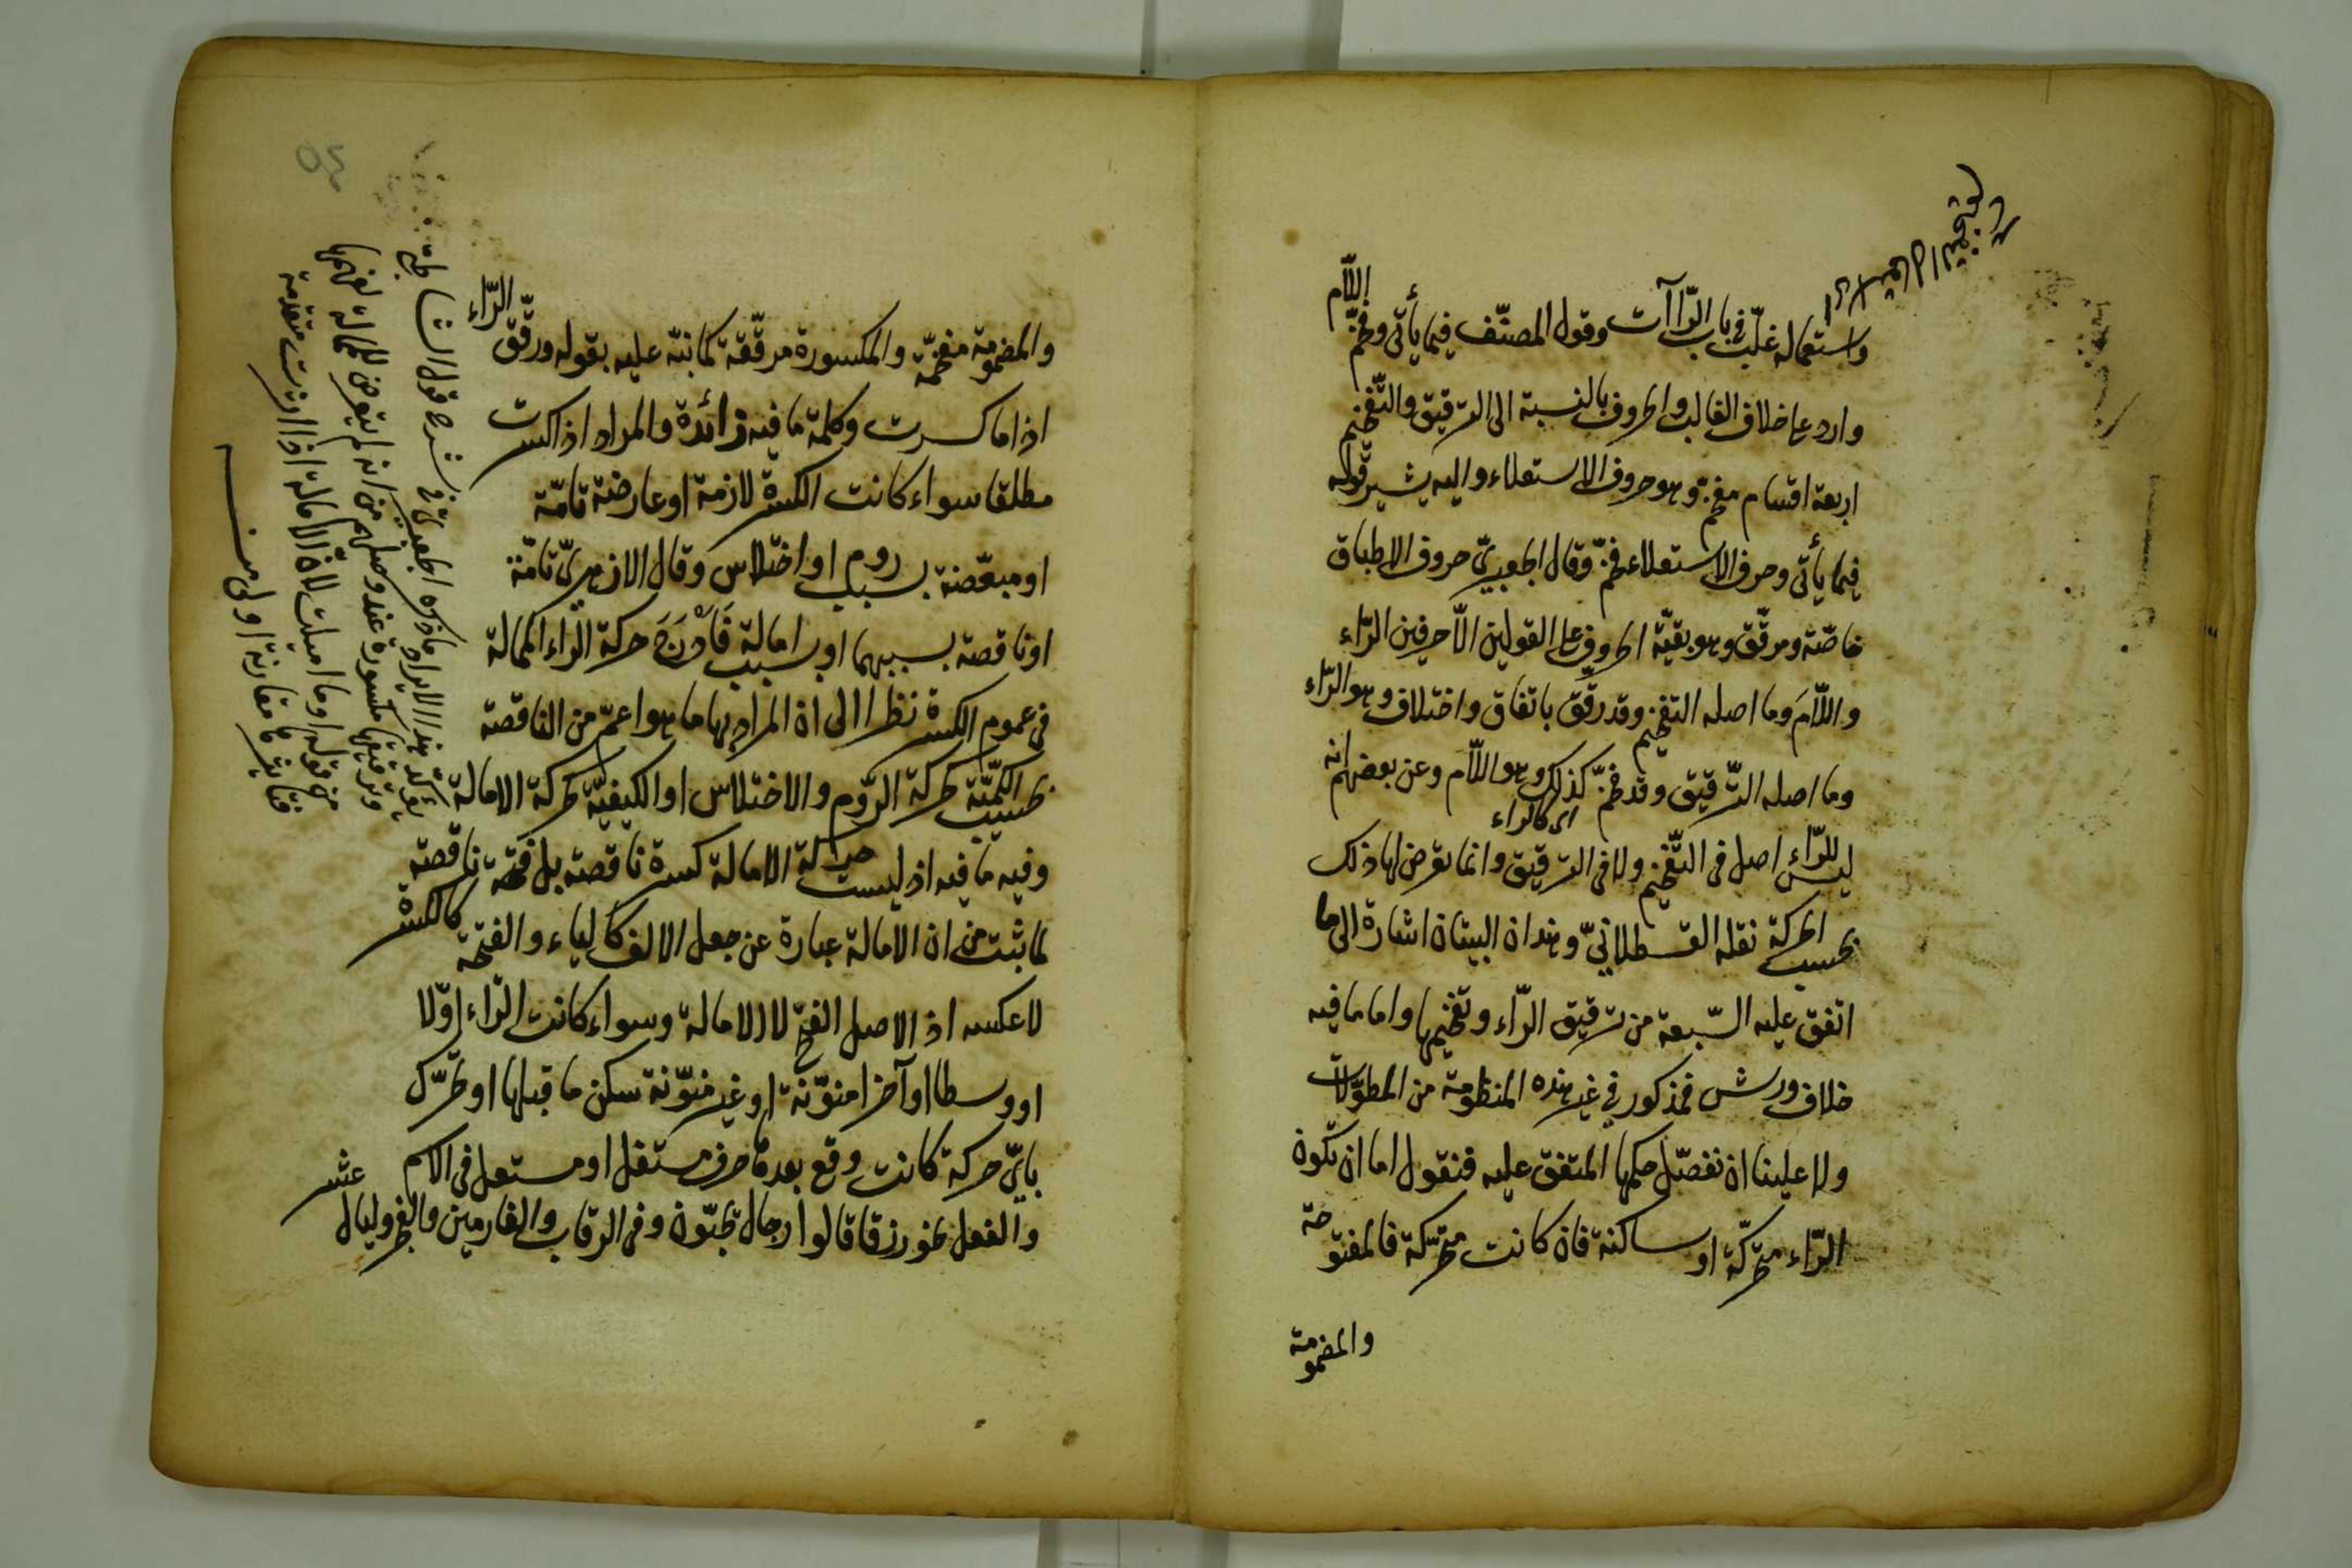 واستعماله غلّب في باب الرّاآت وقول المصنّف فيما يأتى وفخّم اللّام
وارد على خلاف الغالب والحروف بالنسبة الى الترقيق والتّفخيم
اربعة اقسام مفخّم وهو حروف الاستعلاء واليه يشير قوله
فيما يأتى وحرف الاستعلاء فخّم وقال الجعبرىّ حروف الاطباق
خاصّة ومرقّق وهو بقيّة الحروف على القولين الّا حرفين الرّاء
واللّامَ وما اصله التفخيم وقد رقّق باتفاق واختلاف وهو الرّاء
وما اصله التّرقيق وقد فخّم كذلك وهو اللّام وعن بعضهم انه
اى كالراء
ليس للرّاء اصل فى التّفخيم ولا فى الترقيق وانما يعرض لها ذلك
بحسب الحركة نقله القسطلانىّ وهذان البيتان اشارة الى ما
اتفق عليه السّبعة من ترقيق الرّاء وتفخيمها واما ما فيه
خلاف ورش فمذكور في غير هذه المنظومة من المطوّلات
ولا علينا ان نفصّل حكمها المتفق عليه فنقول اما ان تكون
الرّاء متحرّكة او ساكنة فان كانت متحرّكة فالمفتوحة
والمضمومة
والمضمومة مفخّمة والمكسورة مرقّقة كما نبّه عليه بقوله ورقّق الرّاء
اذا ما كسرت وكلمة ما فيه زائدة والمراد اذا كسرت
مطلقا سواء كانت الكسرة لازمة او عارضة تامّة
او مبعّضة بسبب روم او اختلاس وقال الازهرىّ تامّة
او ناقصة بسببهما او بسبب امالة فَاَدْرَجَ حركة الرّاء الممالة
فى عموم الكسرة نظرا الى ان المراد بها ما هو اعمّ من الناقصة
بحسب الكمّيّة كحركة الرّوم والاختلاس او الكيفيّة كحركة الامالة
وفيه ما فيه اذ ليست حركة الامالة كسرة ناقصة بل فتحة ناقصة
لما ثبت من ان الامالة عبارة عن جعل الالف كالياء والفتحة كالكسرة
لا عكسه اذ الاصل الفتح لا الامالة وسواء كانت الرّاء اوّلا
او وسطا او آخرا منوّنة او غير منوّنة سكن ما قبلها او تحرّك
بايّ حركة كانت وقع بعدها حرف مستفل او مستعل فى الاسم
والفعل نحو رزقا قالوا رجال يحبّون وفى الرقاب والغارمين والفجر وليال عشر
يؤكد هذا الايراد ما ذكره الجعبرىّ في شرح قول الشاطبىّ
وترقيقها مكسورة عند وصلهم من انه لم يتعرض للممالة لفهمها
من قوله وما اميلت لانّ الامالة اذا اثرت متقدمة
فتأثيرها مقارنة اولى منه